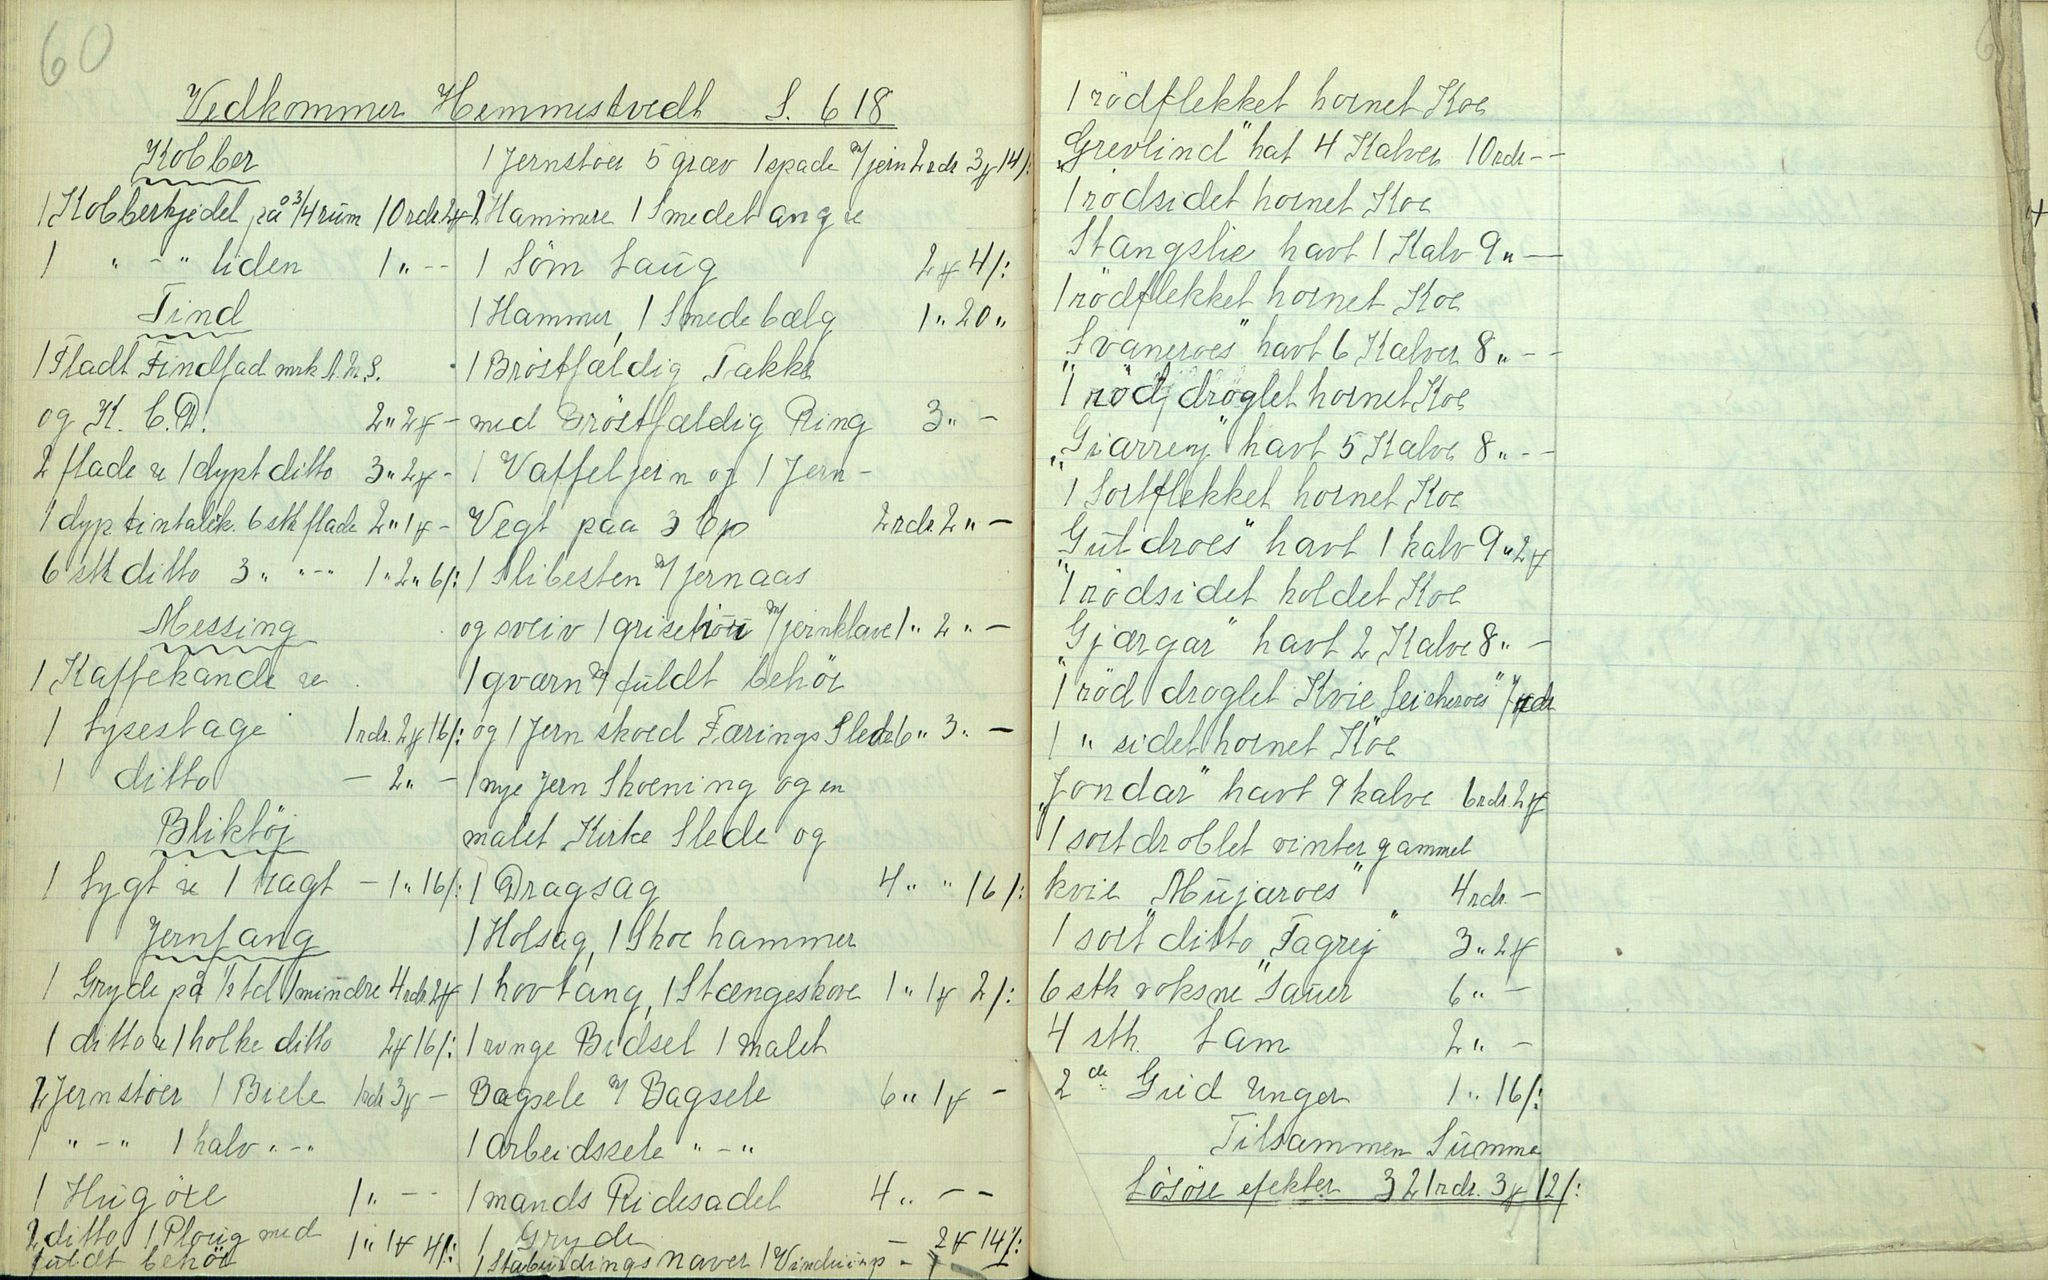 60
Vedkommer Hemmistvedt S. 618
Kobber
1 Kobberkjedel på 3/4 rum 10 rdr 2 ₰
1 " - " liden 1 " - -
Tind
1 Fladt Tindfad mrk
og K. C. D. 2 " 2 ₰ -
2 flade u 1 dypt ditto 3 " 2 ₰ -
1 dyp tintalik. 6 stk flade 2 " 1 ₰ -
6 stk ditto 3 " " - - 1 " 2 " 6 /:
Messing
1 Kaffekande u
1 Lysestage 1 rdr. 2 ₰ 16 /:
1 ditto - 2 " -
Bliktöj
1 Lygt u 1 tragt - 1 " 16 /:
Jernfang
1 Gryde på 1/2 td 1 mindre 4 rdr. 2 ₰
1 ditto u 1 holke ditto 2 ₰ 16 /:
2 Jernstöer 1 Biele 1 rdr 3 ₰ -
1 " - " 1 halv " - "
1 Hugöxe 1 " - -
2 ditto 1 Ploug med 1 " 1 ₰ 4 /:
fuldt behör
1 Jernstöer 5 græv 1 spade m/jern 2 rdr 3 ₰ 14 /:
2 Hammere 1 Smedetang u
1 Söm Laug 2 ₰ 4 /:
1 Hammer, 1 Smedebælg 1 " 20 "
1 Bröstfældig Takke
med Bröstfældig Ring 3 " -
1 Vaffeljern og 1 Jern -
Vegt paa 3 Bp 2 rdr. 2 " -
1 Slibesten m/ jernaas
og sveiv 1 m/ jernklave 1 " 2 " -
1 gværn m/ fuldt behör
og 1 Jern skoed Færings Slede 6 " 3 " -
1 nye Jern Skoening og en
malet Kirke Slede og
1 Dragsag 4 " " 16 /:
1 Holsag, 1 Skoe hammer
1 hovtang, 1 Stængeskove 1 " 1 ₰ 2 /:
1 runge Bidsel 1 malet
Bogsele m/ Bagsele 6 " 1 ₰ -
1 Arbeidssele " - "
1 mands Ridesadel 4 " - -
1 Gryde - 2 ₰ 14 /:
1 naver 1
1 rödflekket hornet Koe
"Grevlind" hat 4 Kalver 10 rdr - -
1 rödsidet hornet Koe
Stangslie havt 1 Kalv 9 " -
1 rödflekket hornet Koe
"Svaneroes" havt 6 Kalver 8 " - -
1 röd dröglet hornet Koe
"Giarrej" havt 5 Kalve 8 " - -
1 Sortflekket hornet Koe
"Guldroes" havt 1 kalv 9 " 2 ₰
1 rödsidet koldet Koe
"Gjærgar" havt 2 Kalve 8 " -
1 röd droglet Kvie Leirheroes" 7 rdr
1 " sidet hornet Koe
"Jondar" havt 9 kalve 6 rdr. 2 ₰
1 sort droblet vinter gammel
kvie "Mujaroes" 4 rdr. -
1 sort ditto "Fagrej" 3 " 2 ₰
6 stk voksne Sauer 6 " -
4 stk. Lam 2 " -
2 de Gied Unger 1 " 16 /:
Tilsammen Summa
Lösöre efekter 321 rdr. 3 ₰ 12 /: